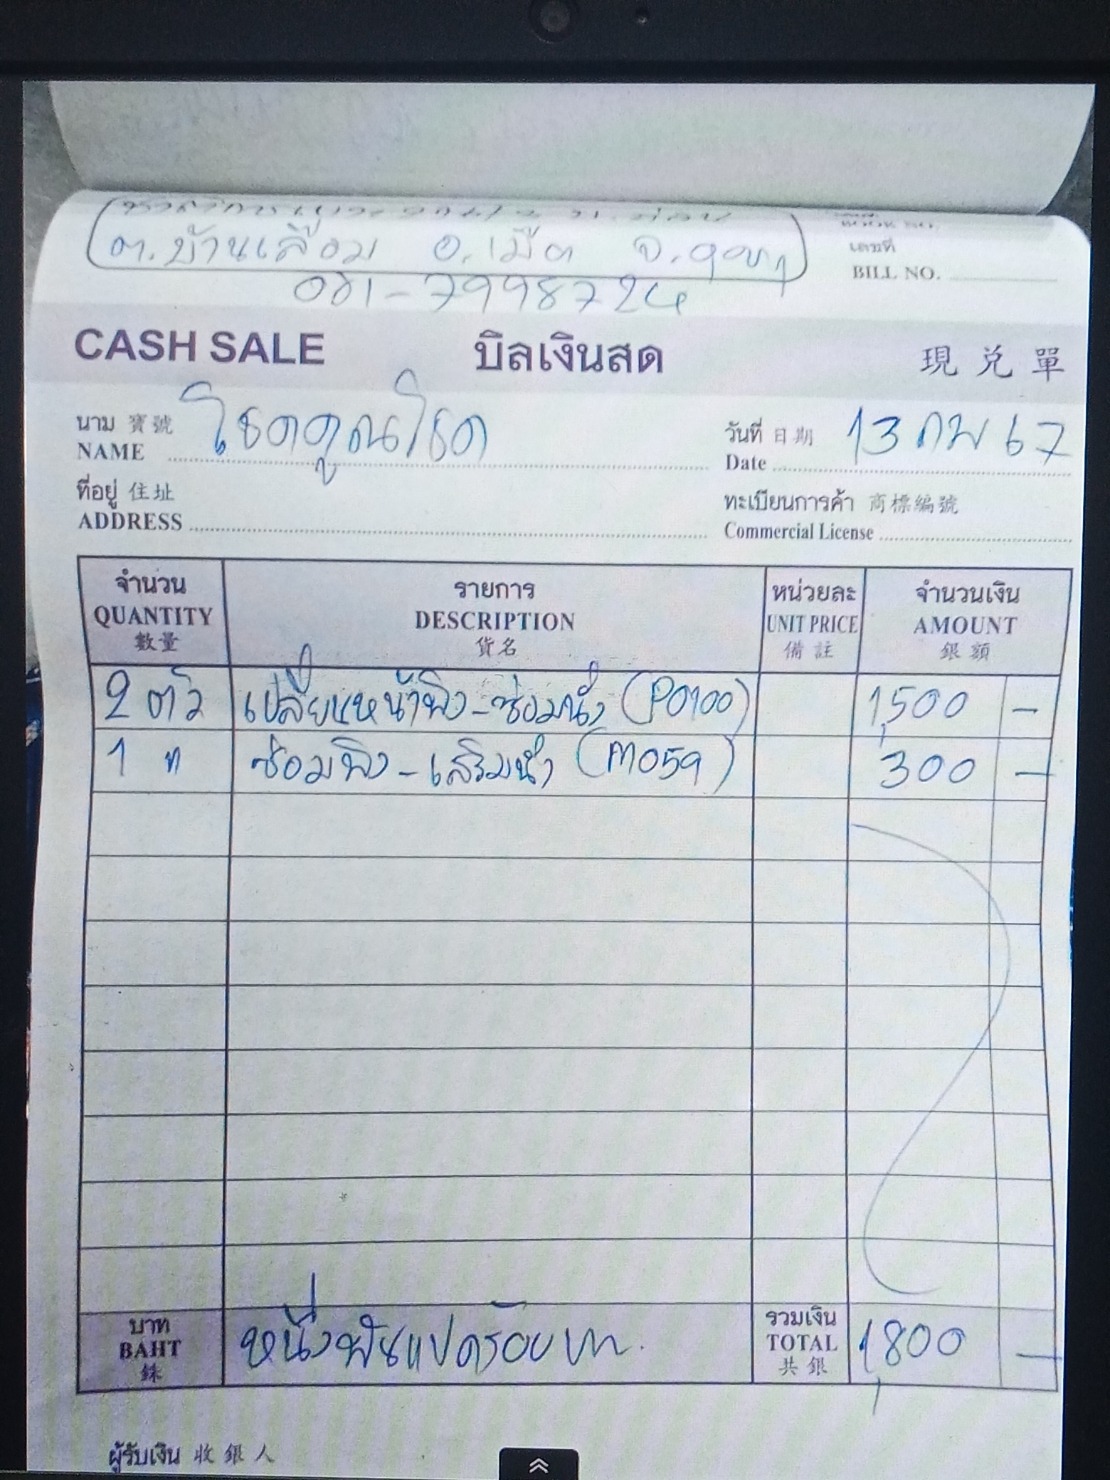 ต.บ้านเลื่อม อ.เมือง จ.อุดรฯ
081-7998724
BOOK NO.
เลขที่
BILL NO.
CASH SALE บิลเงินสด 現兌單
นาม 寶號 NAME โชคคูณโชค
วันที่ 日期 Date 13 กพ 67
ที่อยู่ 住址 ADDRESS
ทะเบียนการค้า 商標編號 Commercial License
จำนวน รายการ หน่วยละ จำนวนเงิน
QUANTITY DESCRIPTION UNIT PRICE AMOUNT
數量 貨名 備註 銀額
2 ตัว เปลี่ยนหน้าพิง-ซ่อมนั่ง (P0100) 1,500 -
1 " ซ่อมพิง-เสริมนั่ง (M059) 300 -
บาท BAHT 銖 หนึ่งพันแปดร้อยบาท. รวมเงิน TOTAL 共銀 1,800 -
ผู้รับเงิน 收銀人